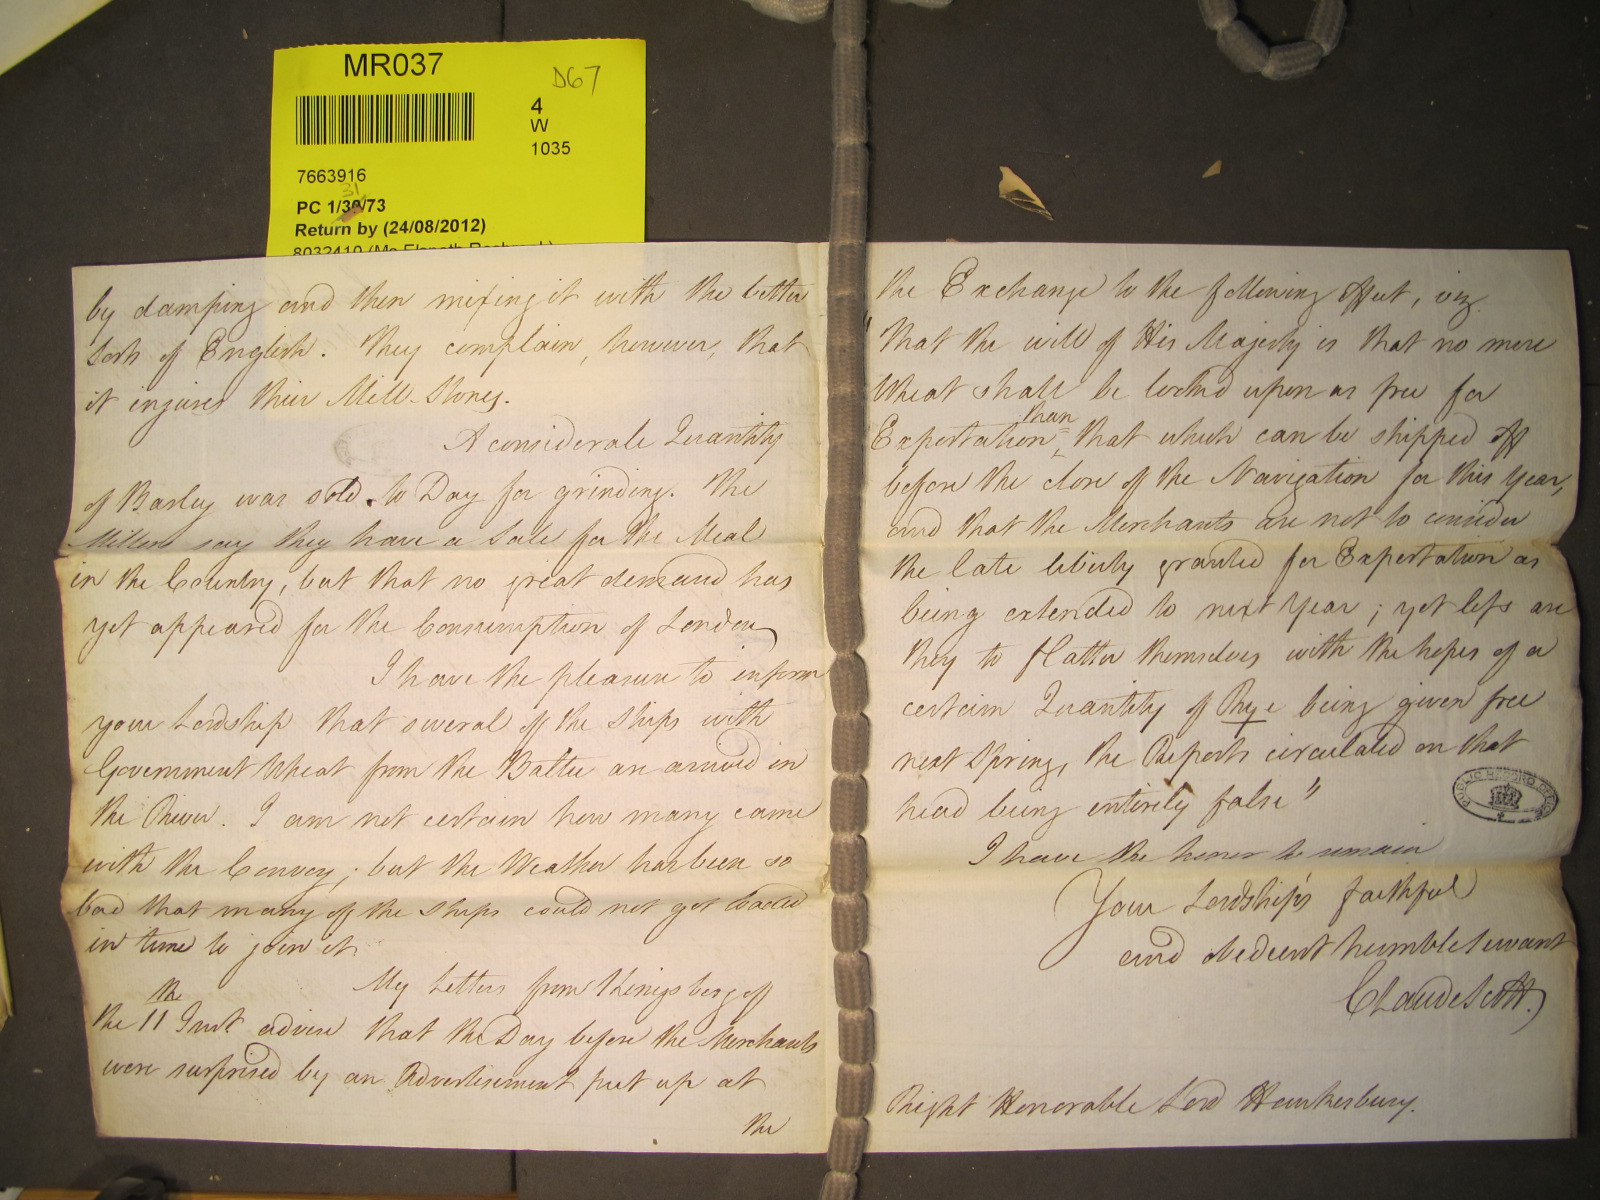 MR037
D67
4
W
1035
7663916
31
PC 1/30/73
Return by (24/08/2012)
by damping and then mixing it with the better
sorts of English. They complain, however, that
it injures their Mill-Stones.
A considerale Quantity
of Barley was sold to Day for grinding. The
Millers say they have a Sale for the Meal
in the Country, but that no great demand has
yet appeared for the Consumption of London
I have the pleasure to inform
your Lordship that several of the Ships with
Government Wheat from the Baltic are arrived in
the River. I am not certain how many came
with the Convoy; but the Weather has been so
bad that many of the Ships could not get loaded
in time to join it.
My Letters from Kningsberg of
the 11th Inst. advise that the Day before the Merchants
were surprised by an Advertisement put up at
the
the Exchange to the following effect, viz.
"That the will of His Majesty is that no more
Wheat shall be looked upon as free for
than
Exportation, that which can be shipped off
before the close of the Navigation for this Year,
and that the Merchants are not to consider
the late liberty granted for Exportation as
being extended to next Year; yet less are
they to flatter themselves with the hopes of a
certain Quantity of Rye being given free
next Spring, the Reports circulated on that
head being entirely false"
I have the honor to remain
Your Lordship's faithful
and obedient humble Servant
Claude Scott.
Right Honorable Lord Hawkesbury.
PUBLIC RECORD OFFICE